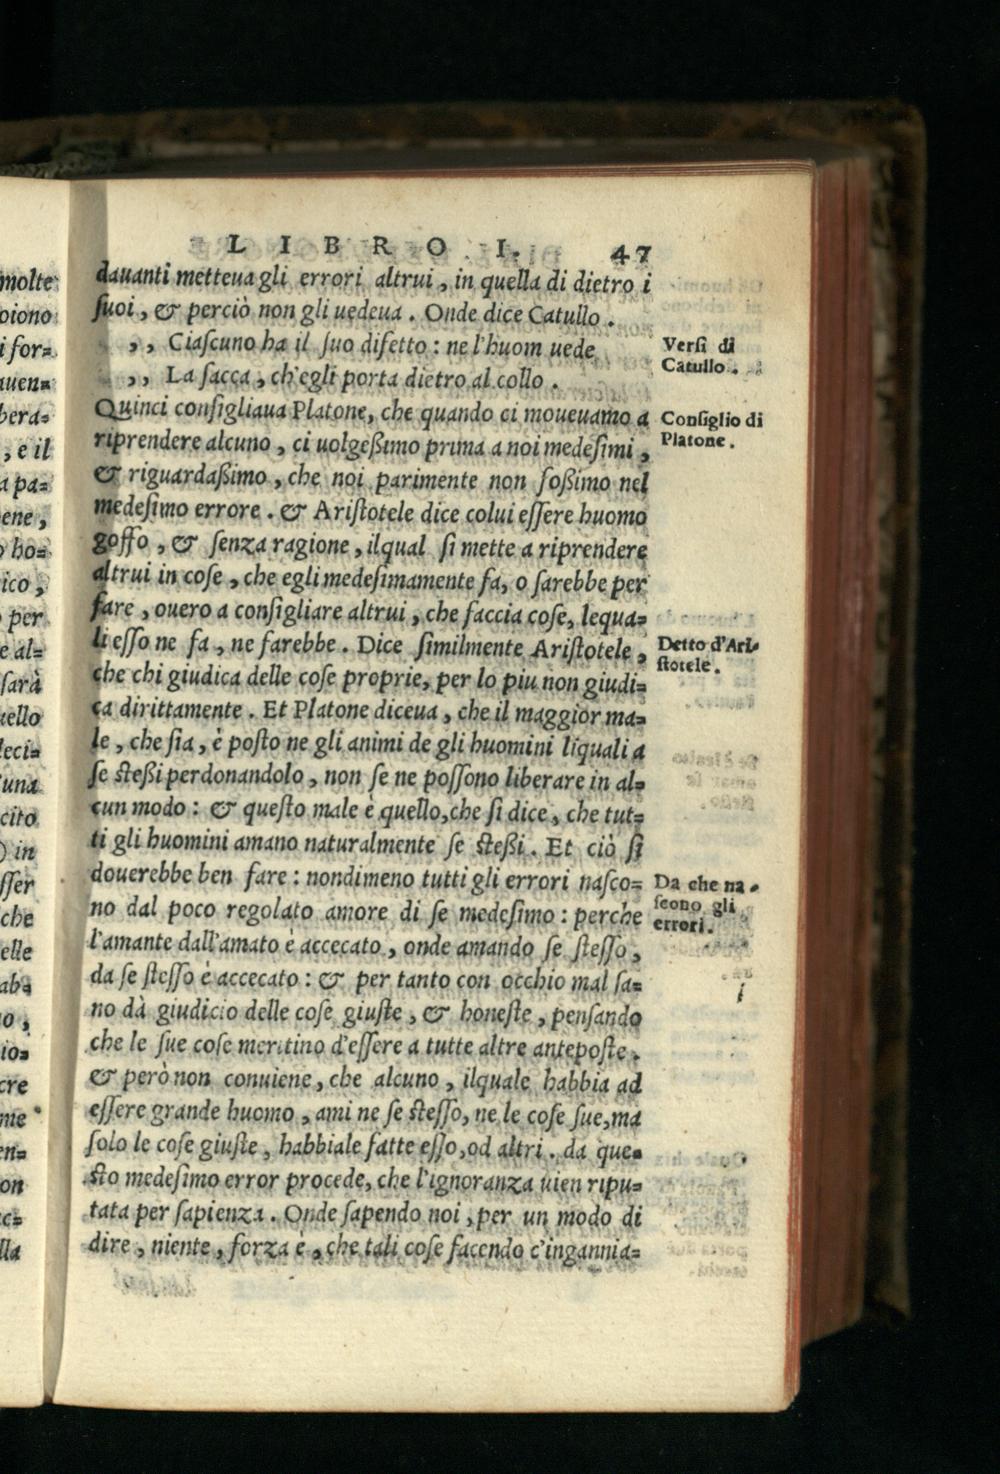 LIBRO I. 47
davanti metteua gli errori altrui, in quella di dietro i
suoi, & perciò non gli uedeua. Onde dice Catullo.
,, Ciascuno ha il suo difetto: ne l'huom uede
,, La sacca, ch'egli porta dietro al collo.
Versi di
Catullo.
Quinci consigliaua Platone, che quando ci moueuamo a
riprendere alcuno, ci uolgeßimo prima a noi medesimi,
& riguardaßimo, che noi parimente non foßimo nel
medesimo errore. & Aristotele dice colui essere huomo
goffo, & senza ragione, ilqual si mette a riprendere
altrui in cose, che egli medesimamente fa, o sarebbe per
fare, ouero a consigliare altrui, che faccia cose, lequa=
li esso ne fa, ne farebbe. Dice similmente Aristotele,
che chi giudica delle cose proprie, per lo piu non giudi=
ca dirittamente. Et Platone diceua, che il maggior ma=
le, che sia, è posto ne gli animi de gli huomini liquali a
se steßi perdonandolo, non se ne possono liberare in al=
cun modo: & questo male è quello, che si dice, che tut=
ti gli huomini amano naturalmente se steßi. Et ciò si
douerebbe ben fare: nondimeno tutti gli errori nasco=
no dal poco regolato amore di se medesimo: perche
l'amante dall'amato è accecato, onde amando se stesso,
da se stesso è accecato: & per tanto con occhio mal sa=
no dà giudicio delle cose giuste, & honeste, pensando
che le sue cose meritino d'essere a tutte altre anteposte.
& però non conuiene, che alcuno, ilquale habbia ad
essere grande huomo, ami ne se stesso, ne le cose sue, ma
solo le cose giuste, habbiale fatte esso, od altri. da que=
sto medesimo error procede, che l'ignoranza uien ripu=
tata per sapienza. Onde sapendo noi, per un modo di
dire, niente, forza è, che tali cose facendo c'ingannia=
Consiglio di
Platone.
Detto d'Ari=
stotele.
Da che na=
scono gli
errori.
molte
oiono
i for=
auen=
bera=
, e il
a pa=
ene,
o ho=
ico,
per
e al=
sarà
uello
deci=
una
cito
) in
sser
che
elle
ab=
no,
io=
cre
me
en=
on
lla